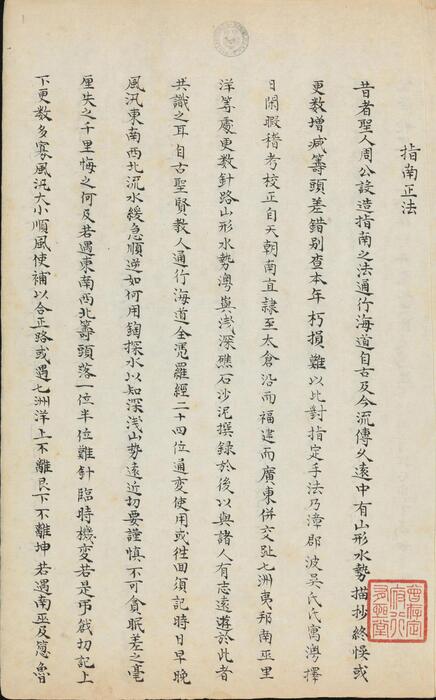 指南正法
昔者聖人周公設造指南之法通行海道自古及今流傳久遠中有山形水勢描抄終悞或
更数增减籌頭差錯别查本年朽損難以比對指定手法乃漳郡波吳氏氏寓澚擇
日閑暇稽考校正自天朝南直隶至太倉沿而福建而廣東併交趾七洲夷邦南巫里
洋等處更数針路山形水勢澳嶼浅深礁石沙泥撰録於後以與諸人有志遠遊於此者
共識之耳自古聖賢教人通行海道全憑羅經二十四位通变使用或徃囬須記時日早晚
風汛東南西北流水緩急順逆如何用鉤探水以知深浅山势遠近切要謹慎不可貪眠差之毫
厘失之千里悔之何及若遇東南西北籌頭落一位半位難針臨時機变若是吊戧切記上
下更数多寡風汛大小順風使補以合正路或遇七洲洋上不離艮下不離坤若遇南巫及䓗魯